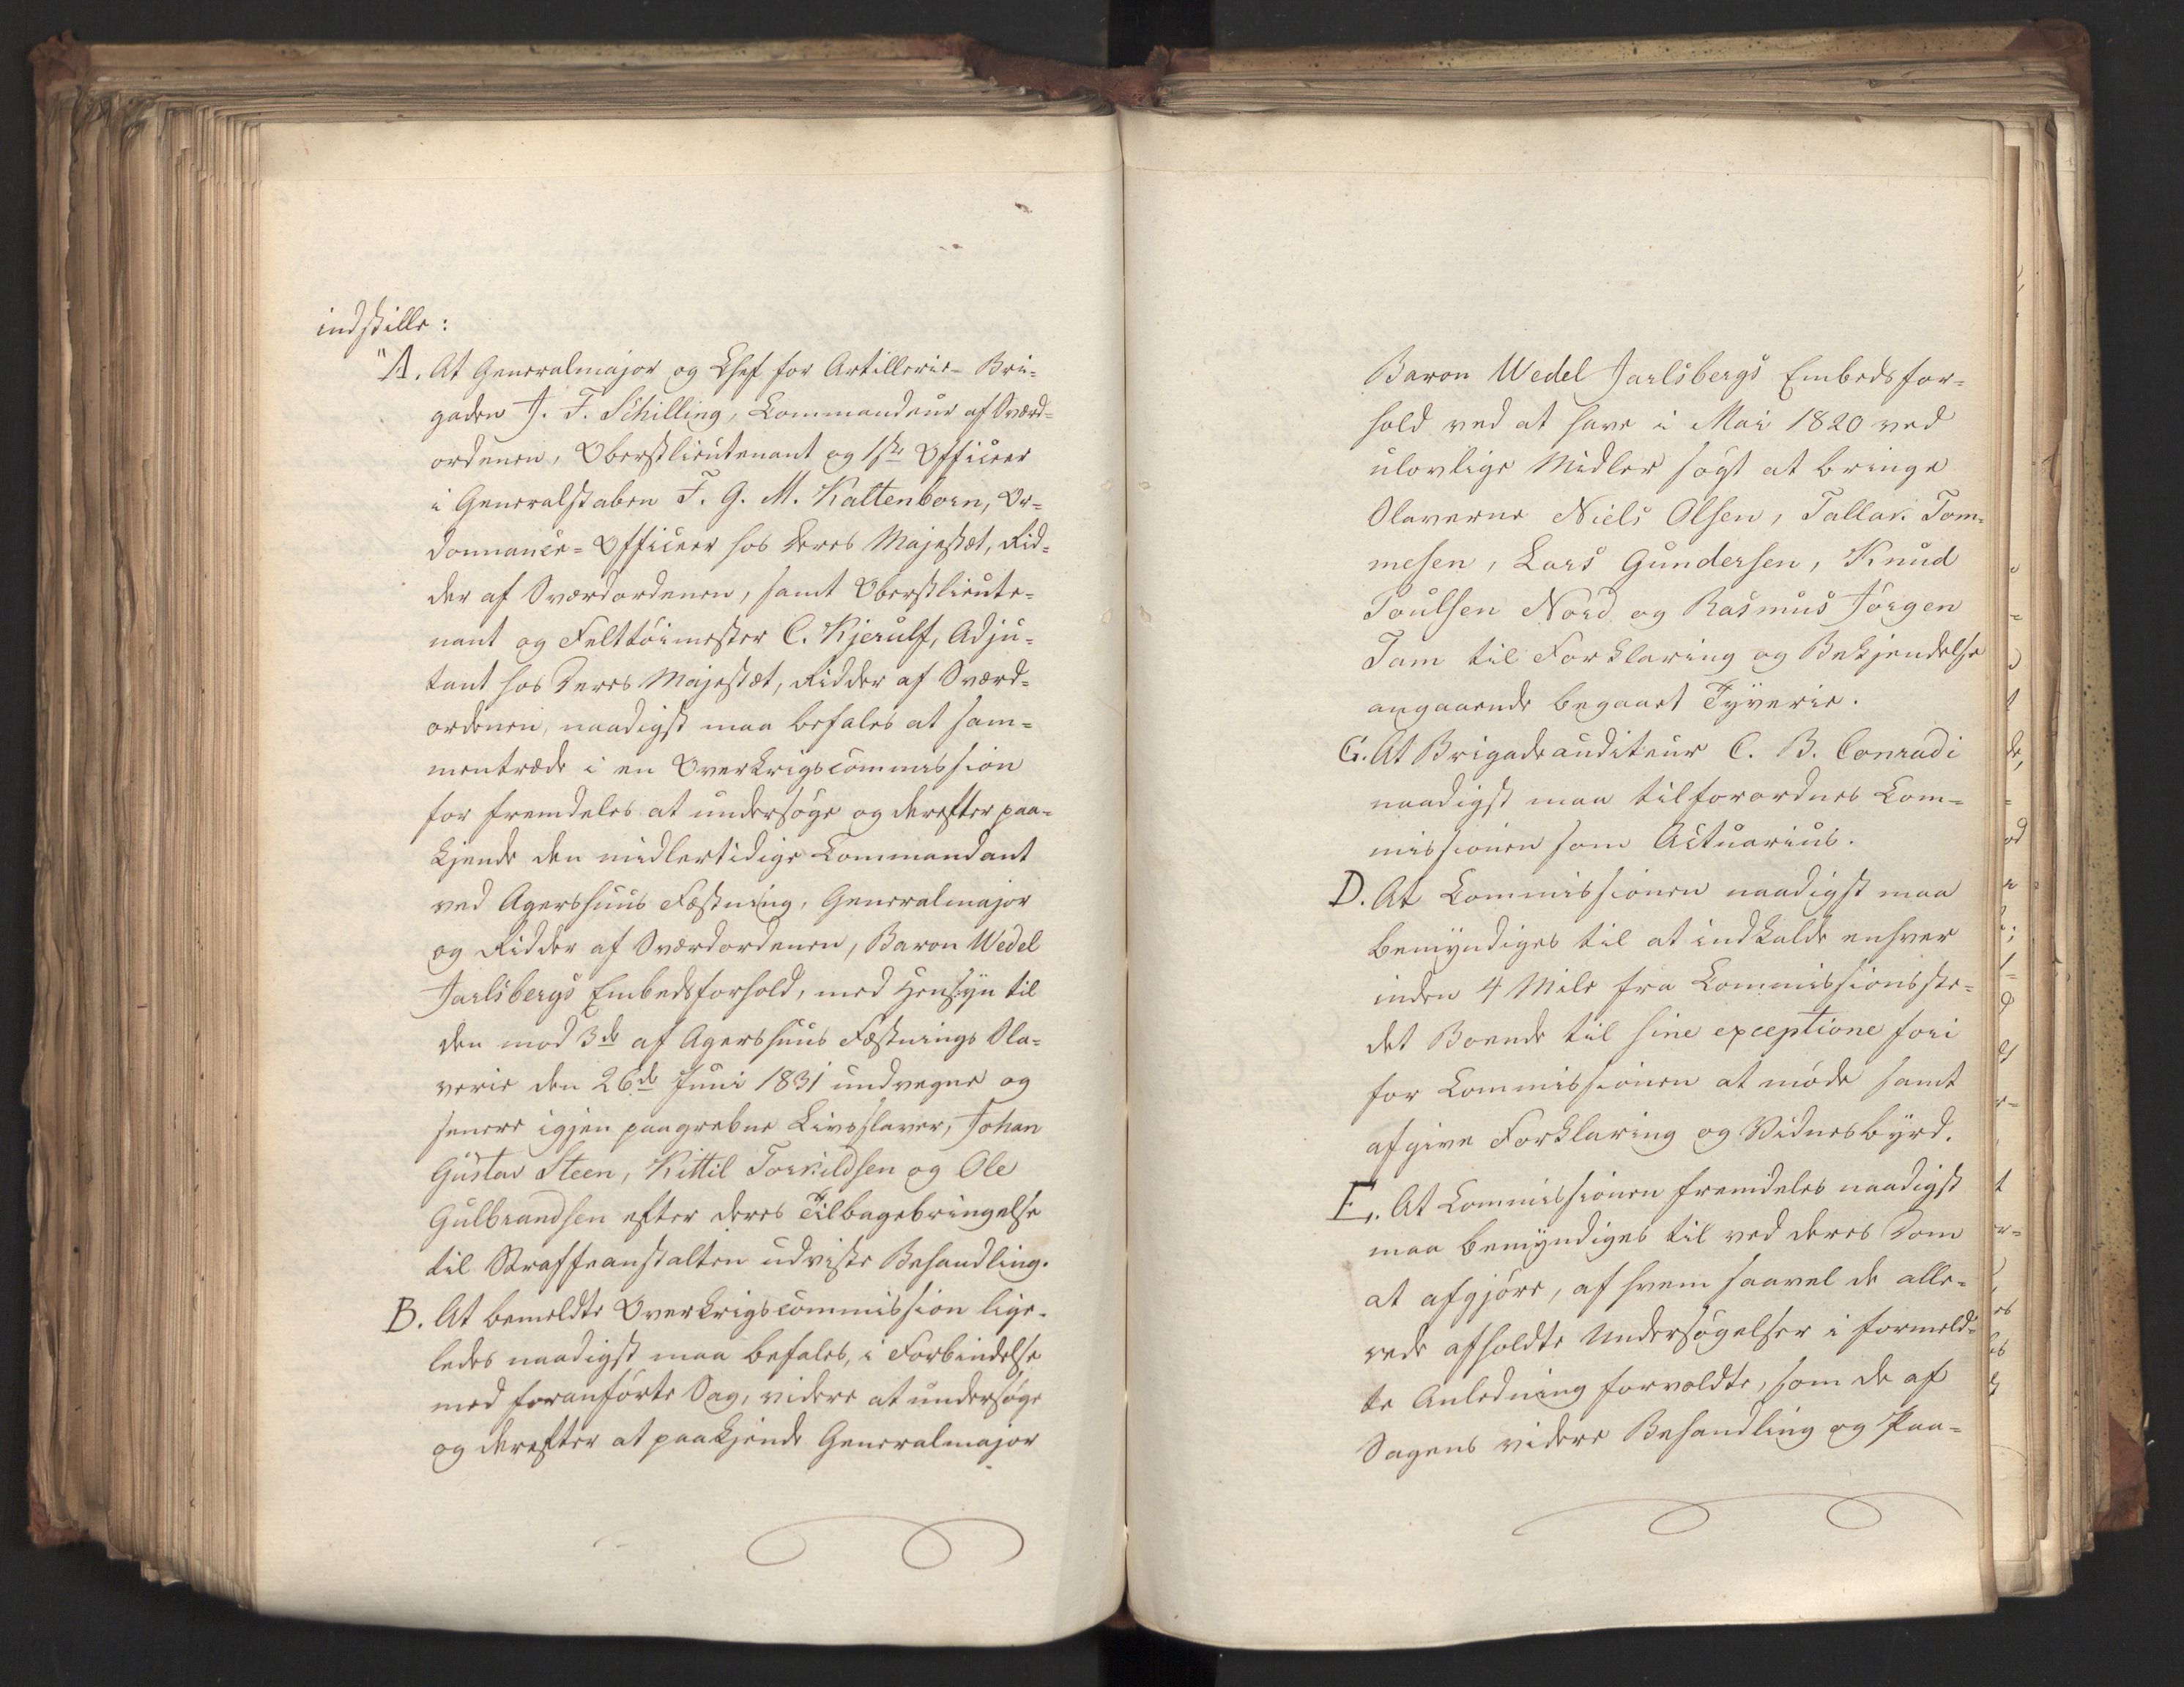 indstille:
"A. At Generalmajor og Chef for Artillerie-Bri=
gaden J. F. Schilling, Commandeur af Sværd=
ordenen, Oberstlieutenant og 1ste Officeer
i Generalstaben F. G. M. Kaltenborn, Or=
donnance=Officeer hos Deres Majestæt, Rid=
der af Sværdordenen, samt Oberstlieute=
nant og Felttöimester C. Kjerulf, Adju=
tant hos Deres Majestæt, Ridder af Sværd=
ordenen, naadigst maa befales at sam=
mentræde i en Overkrigscommission
for fremdeles at undersöge og derefter paa=
kjende den midlertidige Commandant
ved Agershuus Fæstning, Generalmajor
og Ridder af Sværdordenen, Baron Wedel
Jarlsbergs Embedsforhold, med Hensyn til
den mod 3de af Agershuus Fæstnings Sla=
verie den 26de Juni 1831 undvegne og
senere igjen paagrebne Livsslaver, Johan
Gustav Steen, Kittil Torkildsen og Ole
Gulbrandsen efter deres Tilbagebringelse
til Straffeanstalten udviste Behandling.
B. At bemeldte Overkrigscommission lige=
ledes naadigst maa befales, i Forbindelse
med foranförte Sag, videre at undersöge
og derefter at paakjende Generalmajor
Baron Wedel Jarlsbergs Embedsfor=
hold ved at have i Mai 1820 ved
ulovlige Midler sögt at bringe
Slaverne Niels Olsen, Tallak Tom=
mesen, Lars Gundersen, Knud
Poulsen Nord og Rasmus Jörgen
Tam til Forklaring og Bekjendelse
angaaende begaaet Tyverie.
C. At Brigadeauditeur C. B. Conradi
naadigst maa tilforordnes Com=
missionen som Actuarius.
D. At Commissionen naadigst maa
bemyndiges til at indkalde enhver
inden 4 Mile fra Commissionsste=
det Boende til sine exceptione fori
for Commissionen at möde samt
afgive Forklaring og Vidnesbyrd.
E. At Commissionen fremdeles naadigst
maa bemyndiges til ved deres Dom
at afgjöre, af hvem saavel de alle=
rede afholdte Undersögelser i formeld=
te Anledning forvoldte, som de af
Sagens videre Behandling og Paa=